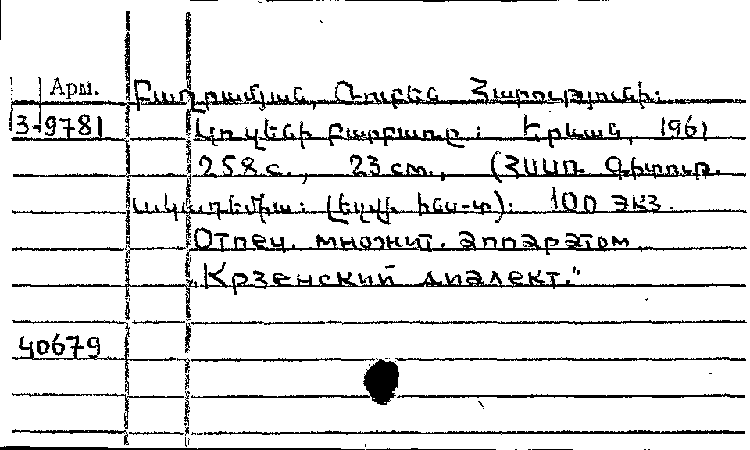 Арм. Բաղրամյան, Ռուբեն Հարությունի:
3-9781 Կռզենի բարբառը: Երևան, 1961
258 с., 23 см., (ՀՍՍՌ Գիտութ.
ակադեմիա: Լեզվի ինս-տ): 100 экз.
Отпеч. множит. аппаратом
„Крзенский диалект."
40679